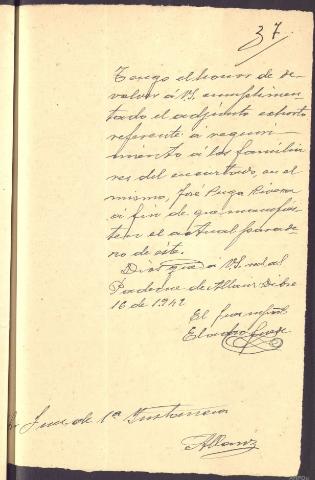 37.
Tengo el honor de de-
volver á V.S. cumplimen-
tado el adjunto exhorto
referente á requeri-
miento á los familia-
res del encartado en el
mismo, José Puga Rivera
á fin de que manifies-
ten el actual parade-
ro de éste.
Dios gue á V.S. m.s a.s
Paderne de Allariz Dibre
16 de 1942
El Juez mpal.
Juez de 1ª Instancia
Allariz